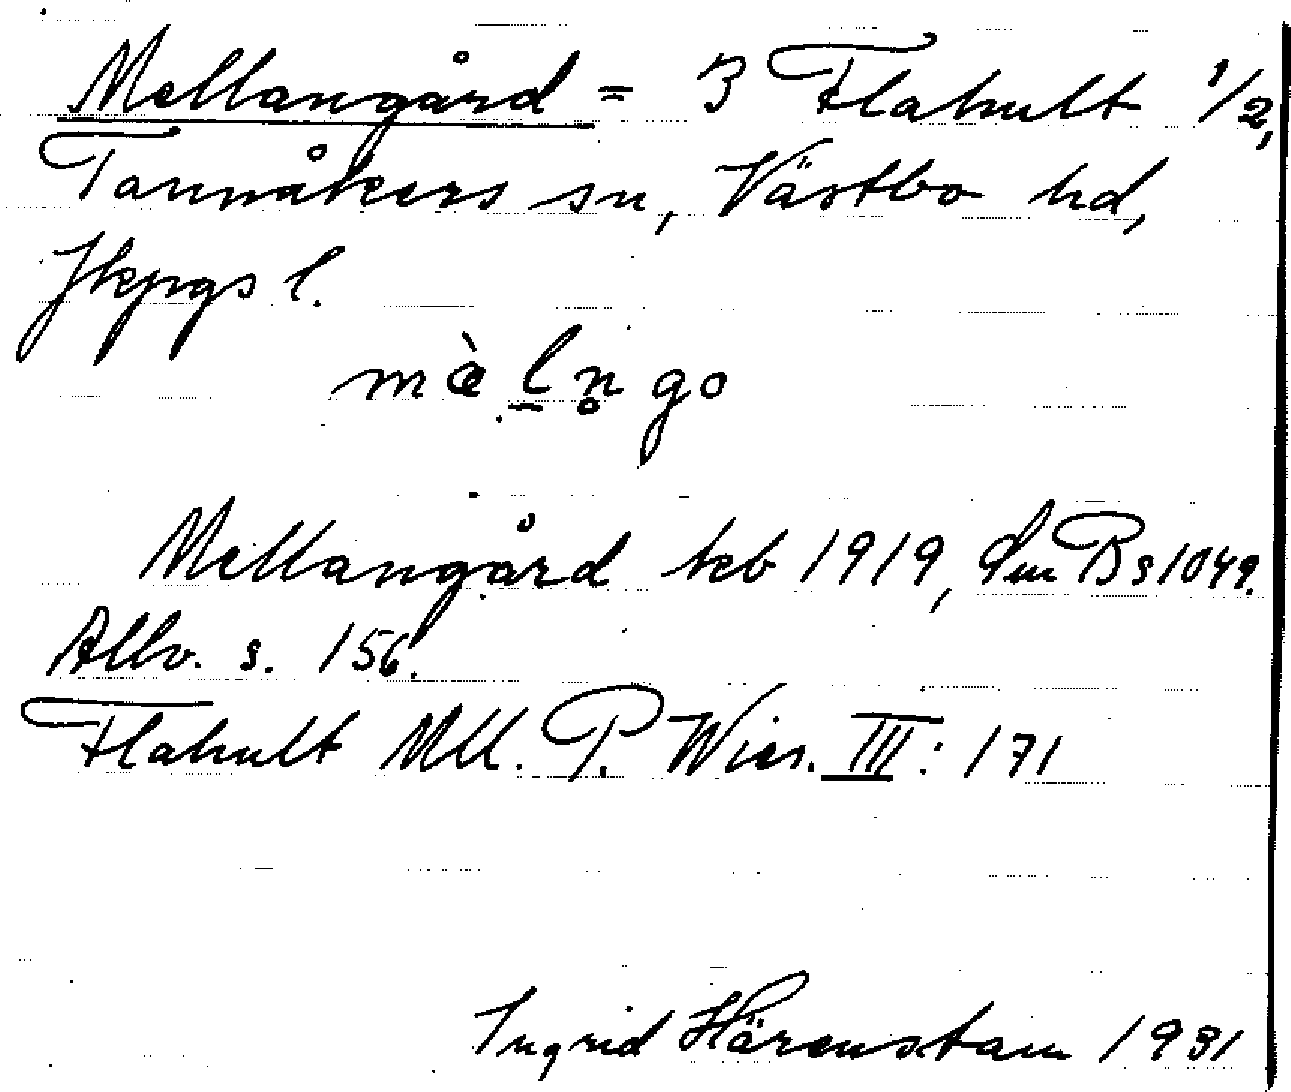 Mellangård = 3 Flahult 1/2,
Tannåkers sn, Västbo hd,
Jkpgs l.
mæ̀l̠n̥go
Mellangård keb 1919, dm Bs 1049.
Allv. s. 156.
Flahult Mll. P. Wies. III: 171
Ingrid Härenstam 1931